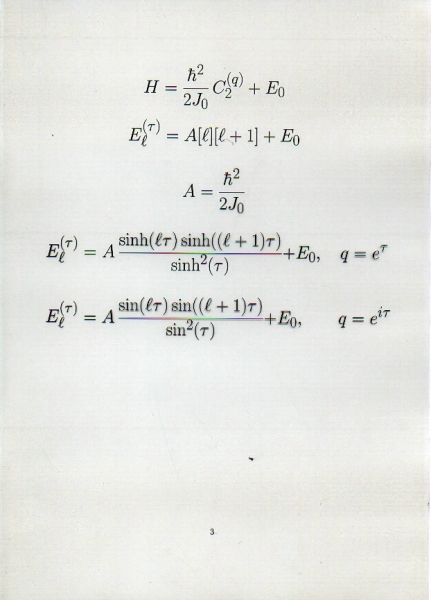 H = ħ²/2J₀ C₂⁽q⁾ + E₀
E_ℓ^(τ) = A[ℓ][ℓ + 1] + E₀
A = ħ²/2J₀
E_ℓ^(τ) = A sinh(ℓτ) sinh((ℓ + 1)τ)/sinh²(τ) + E₀, q = e^τ
E_ℓ^(τ) = A sin(ℓτ) sin((ℓ + 1)τ)/sin²(τ) + E₀, q = e^{iτ}
3